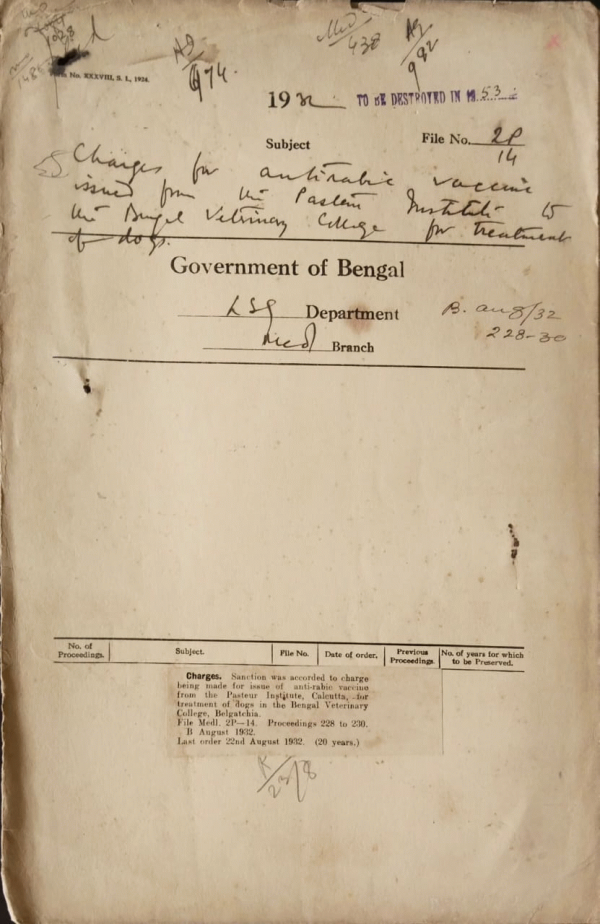 No. XXXVIII, S. I., 1924.
Med
438
974.
992
1932
TO BE DESTROYED IN 1953
Subject
File No. 2P
14
Charges for antirabic vaccine
issued from the Pasteur Institute to
the Bengal Veterinary College for treatment
of dogs.
Government of Bengal
LSG Department
B. Aug/32
228-30
Med Branch
No. of Proceedings. Subject. File No. Date of order. Previous Proceedings. No. of years for which to be Preserved.
Charges. Sanction was accorded to charge
being made for issue of anti-rabic vaccine
from the Pasteur Institute, Calcutta, for
treatment of dogs in the Bengal Veterinary
College, Belgatchia.
File Medl. 2P—14. Proceedings 228 to 230.
B August 1932.
Last order 22nd August 1932. (20 years.)
23/8